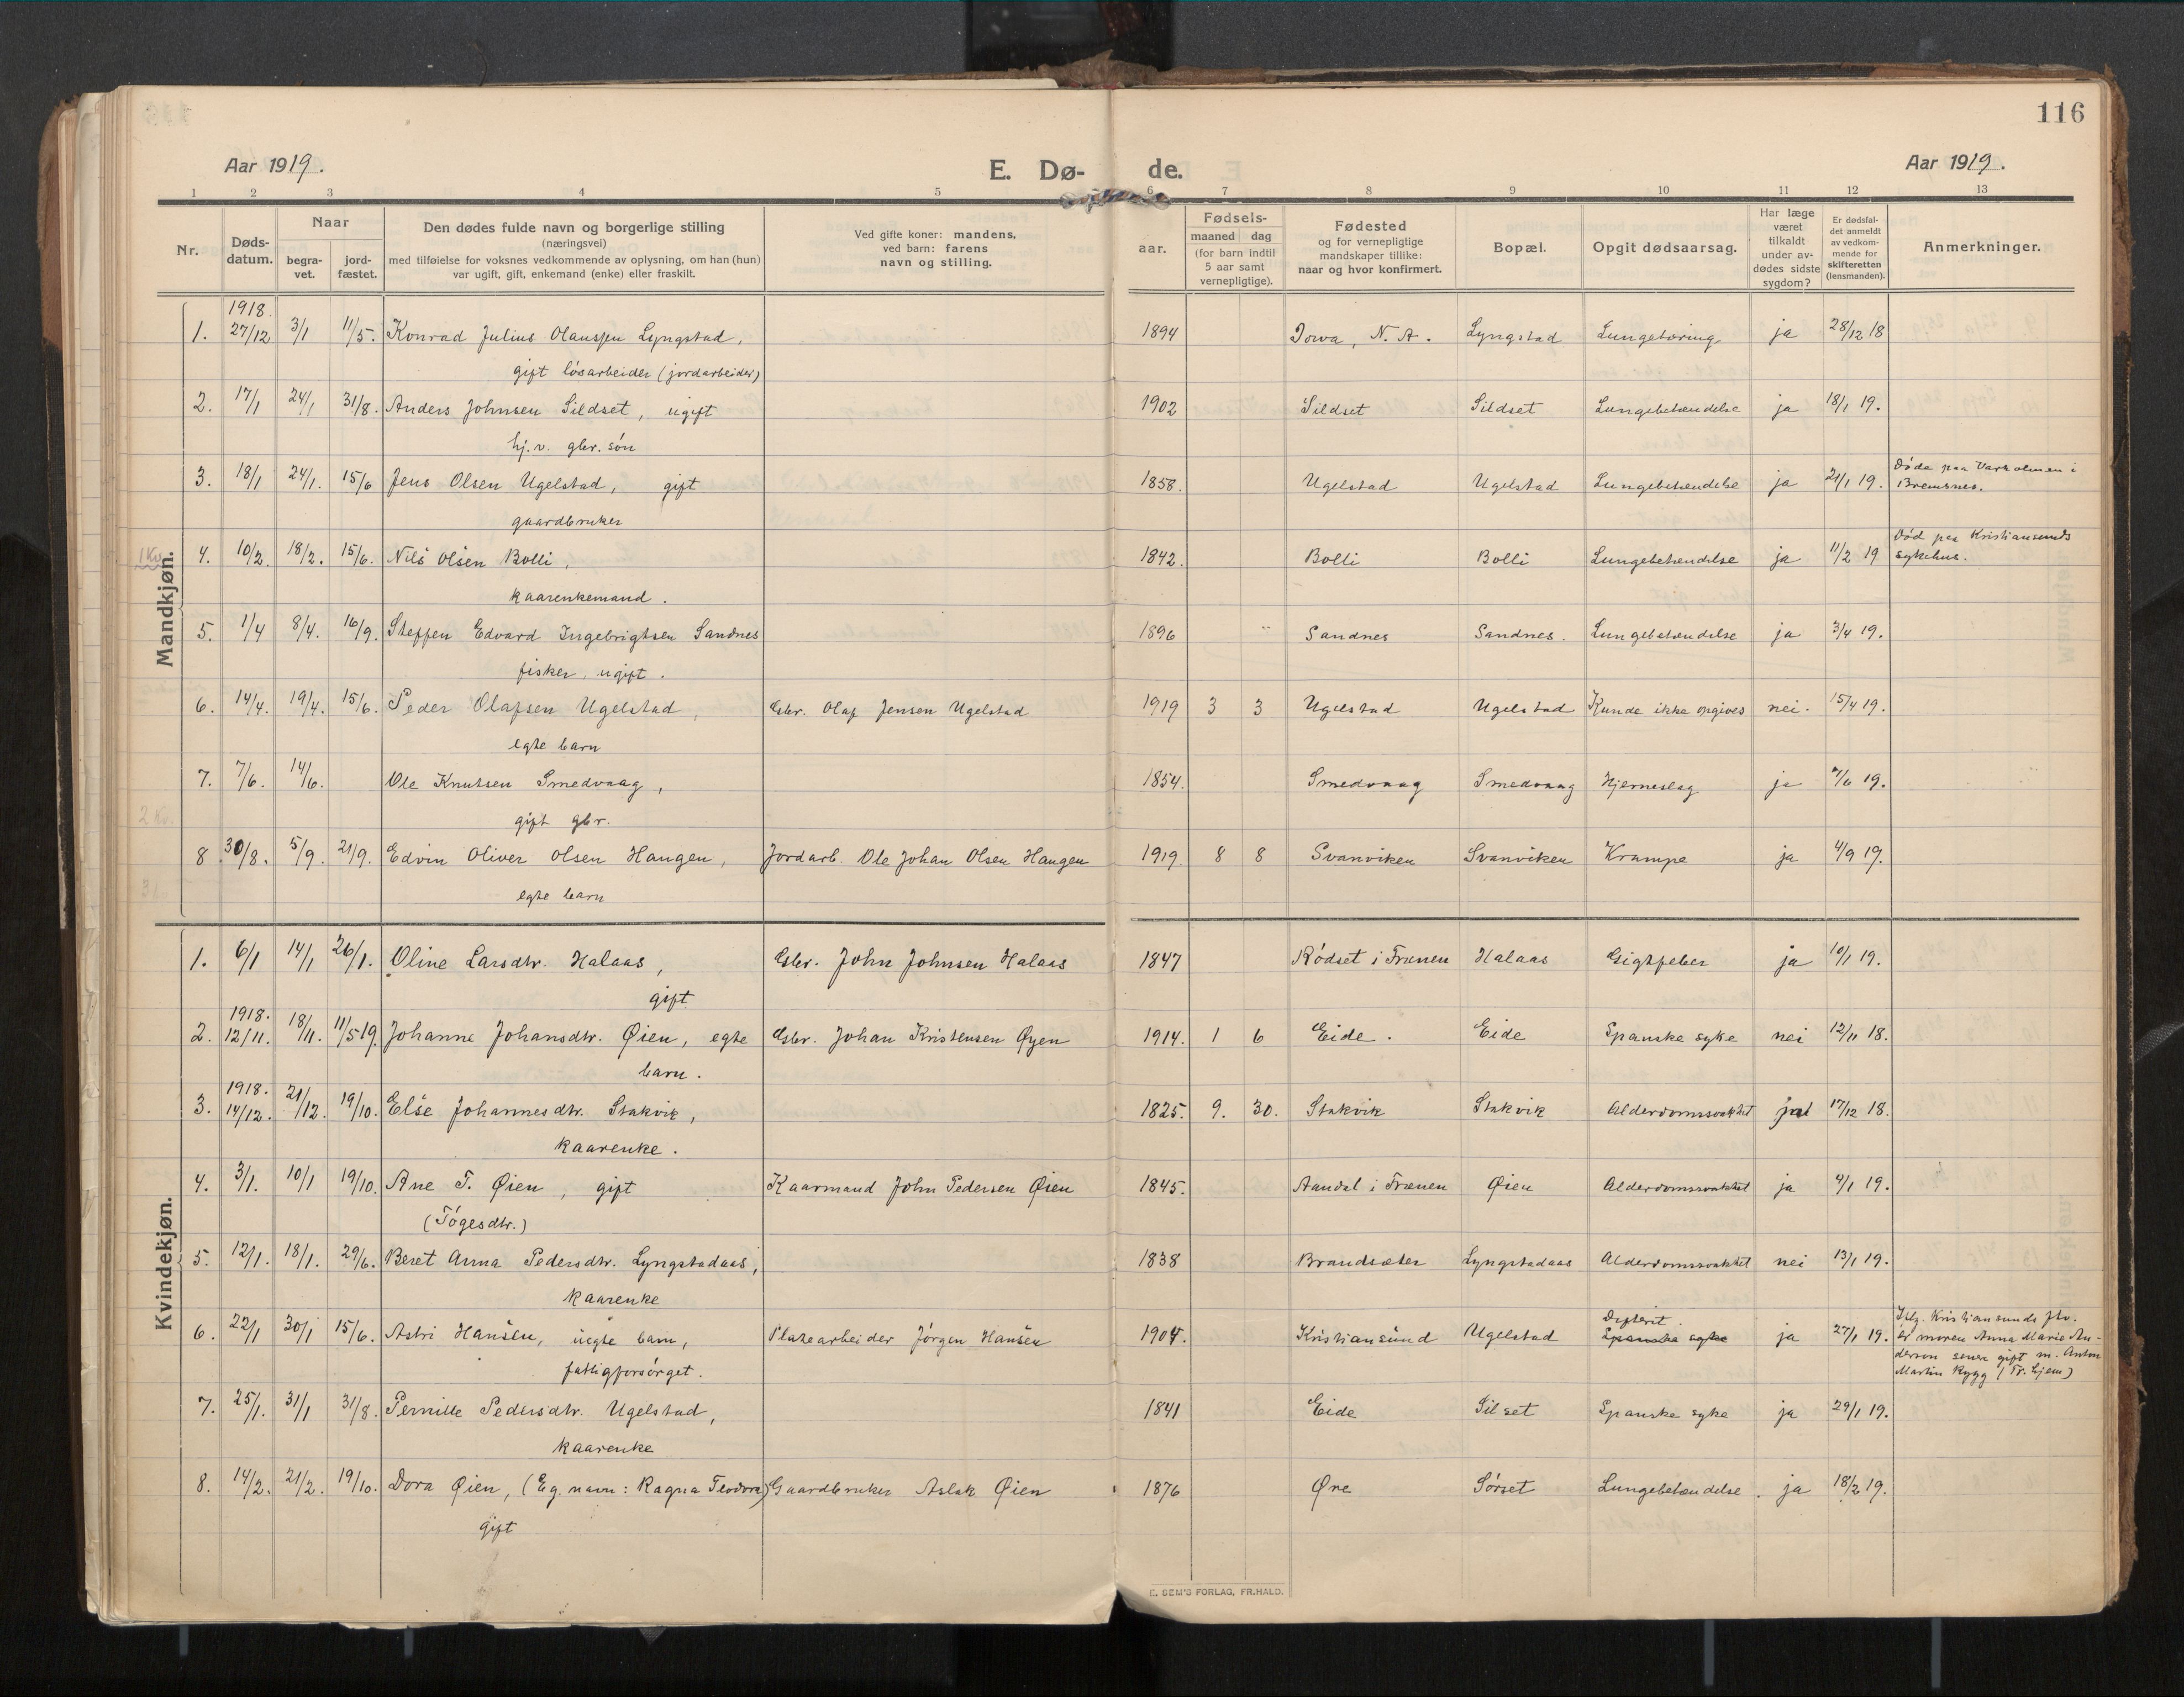 116
Aar 1919.
E. Dø- de.
Aar 1919.
1 2 3 4 5 6 7 8 9 10 11 12 13
Nr.
Døds-
datum.
Naar
begra-
vet.
jord-
fæstet.
Den dødes fulde navn og borgerlige stilling
(næringsvei)
med tilføielse for voksnes vedkommende av oplysning, om han (hun)
var ugift, gift, enkemand (enke) eller fraskilt.
Ved gifte koner: mandens,
ved barn: farens
navn og stilling.
aar.
Fødsels-
maaned dag
(for barn indtil
5 aar samt
vernepligtige).
Fødested
og for vernepligtige
mandskaper tillike:
naar og hvor konfirmert.
Bopæl.
Opgit dødsaarsag.
Har læge
været
tilkaldt
under av-
dødes sidste
sygdom?
Er dødsfal-
det anmeldt
av vedkom-
mende for
skifteretten
(lensmanden).
Anmerkninger.
Mandkjøn.
1918.
1. 27/12 3/1 11/5. Konrad Julius Olaussen Lyngstad, 1894 Iowa, N. A. Lyngstad Lungetæring ja 28/12 18
gift løsarbeider (jordarbeider)
2. 17/1 24/1 31/8. Anders Johnsen Sildset, ugift 1902 Sildset Sildset Lungebetændelse ja 18/1 19.
hj. v. gbr. søn
3. 18/1 24/1. 15/6 Jens Olsen Ugelstad, gift 1858. Ugelstad Ugelstad Lungebetændelse ja 21/1 19. Døde paa Varholmen i
Bremsnes.
gaardbruker
1 Kv.
4. 10/2. 18/2. 15/6. Nils Olsen Bolli, 1842. Bolli Bolli Lungebetændelse ja 11/2 19 Død paa Kristiansunds
sykehus.
kaarenkemand.
5. 1/4 8/4. 16/9. Steffen Edvard Ingebrigtsen Sandnes 1896 Sandnes Sandnes. Lungebetændelse ja 3/4 19.
fisker, ugift.
6. 14/4. 19/4. 15/6. Peder Olafsen Ugelstad, Gbr. Olaf Jensen Ugelstad 1919 3 3 Ugelstad Ugelstad Kunde ikke opgives nei. 15/4 19.
egte barn
7. 7/6. 14/6. Ole Knutsen Smedvaag, 1854. Smedvaag Smedvaag Hjerneslag ja 7/6 19.
gift gbr.
2 Kv.
8 30/8. 5/9. 21/9. Edvin Oliver Olsen Haugen, Jordarb. Ole Johan Olsen Haugen 1919. 8 8 Svanviken Svanviken Krampe ja 4/9 19.
egte barn
Kvindekjøn.
1. 6/1 14/1 26/1. Oline Larsdtr. Halaas, Gbr. John Johnsen Halaas 1847 Rødset i Frænen Halaas Gigtfeber ja 10/1 19.
gift
1918.
2. 12/11. 18/11. 11/5 19. Johanne Johansdtr. Øien, egte Gbr. Johan Kristensen Øyen 1914. 1 6 Eide. Eide Spanske syke nei 12/11 18.
barn.
1918.
3. 14/12. 21/12. 19/10. Else Johannesdtr. Stakvik, 1825. 9. 30. Stakvik Stakvik Alderdomssvakhet ja 17/12 18.
kaarenke.
4. 3/1. 10/1 19/10. Ane T. Øien, gift Kaarmand John Pedersen Øien 1845. Aandal i Frænen Øien Alderdomssvakhet ja 4/1 19.
(Tøgesdtr.)
5. 12/1. 18/1. 29/6. Beret Anna Pedersdtr. Lyngstadaas, 1838 Brandsæter Lyngstadaas Alderdomssvakhet nei 13/1 19.
kaarenke
6. 22/1 30/1 15/6. Astri Hansen, uegte barn, Platearbeider Jørgen Hansen 1907. Kristiansund Ugelstad Difterit. Spanske syke ja 27/1 19. Iflg. Kristiansunds
er moren Anna Marie An-
dersen senere gift m. Anton
Martin Rygg (Tr.hjem)
fattigforsørget.
7. 25/1. 31/1 31/8. Pernille Pedersdtr. Ugelstad, 1841 Eide Silset Spanske syke ja 29/1 19.
kaarenke
8. 14/2. 21/2. 19/10. Dora Øien, (Eg. navn: Ragna Teodora) Gaardbruker Aslak Øien 1876 Øre Sørset Lungebetændelse. ja 18/2 19.
gift
E. SEM'S FORLAG, FR.HALD.